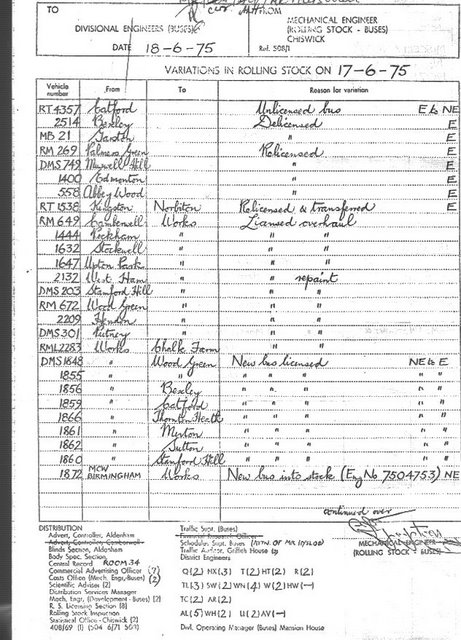 TO
DIVISIONAL ENGINEERS (BUSES)
DATE 18-6-75
FROM
MECHANICAL ENGINEER
(ROLLING STOCK - BUSES)
CHISWICK
Ref. 508/1
VARIATIONS IN ROLLING STOCK ON 17-6-75
Vehicle number From To Reason for variation
RT 4357 Catford Unlicensed bus E to NE
2514 Bexley Delicensed E
MB 21 Sutton " E
RM 269 Palmers Green Relicensed E
DMS 749 Muswell Hill " E
1400 Edmonton " E
558 Abbey Wood " E
RT 1538 Kingston Norbiton Relicensed & transferred E
RM 649 Camberwell Works Licensed overhaul
1444 Peckham " " "
1632 Stockwell " " "
1647 Upton Park " " "
2132 West Ham " " repaint
DMS 203 Stamford Hill " " "
RM 672 Wood Green " " "
2209 Hendon " " "
DMS 301 Putney " " "
RML 2283 Works Chalk Farm
DMS 1848 " Wood Green New bus licensed NE to E
1855 " " " " " " "
1856 " Bexley " " " " "
1859 " Catford " " " " "
1866 " Thornton Heath " " " " "
1861 " Merton " " " " "
1862 " Sutton " " " " "
1860 " Stamford Hill " " " " "
1872 MCW BIRMINGHAM Works New bus into stock (Eng No 7504753) NE
continued over
MECHANICAL ENGINEER
(ROLLING STOCK - BUSES)
DISTRIBUTION
Advert. Controller, Aldenham
Advert. Controller, Camberwell
Blinds Section, Aldenham
Body Spec. Section,
Central Record ROOM 34
Commercial Advertising Officer (7)
Costs Office (Mech. Engr. Buses) (2)
Scientific Adviser (2)
Distribution Services Manager
Mech. Engr. (Development - Buses) (2)
R. S. Licensing Section (8)
Rolling Stock Inspection
Statistical Office - Chiswick (2)
408/69 (1) (504 6/71 50)
Traffic Supt. (Buses)
Financial Research Officer
Schedules Supt. Buses (ATTN. OF MR TAYLOR)
Traffic Auditor, Griffith House
District Engineers
Q(2) HX(3) T(2) HT(2) R(2)
TL(3) SW(2) WN(4) W(2) HW(-)
TC(2) AR(2)
AL(5) WH(2) U(2) AV(-)
Divl. Operating Manager (Buses) Mansion House